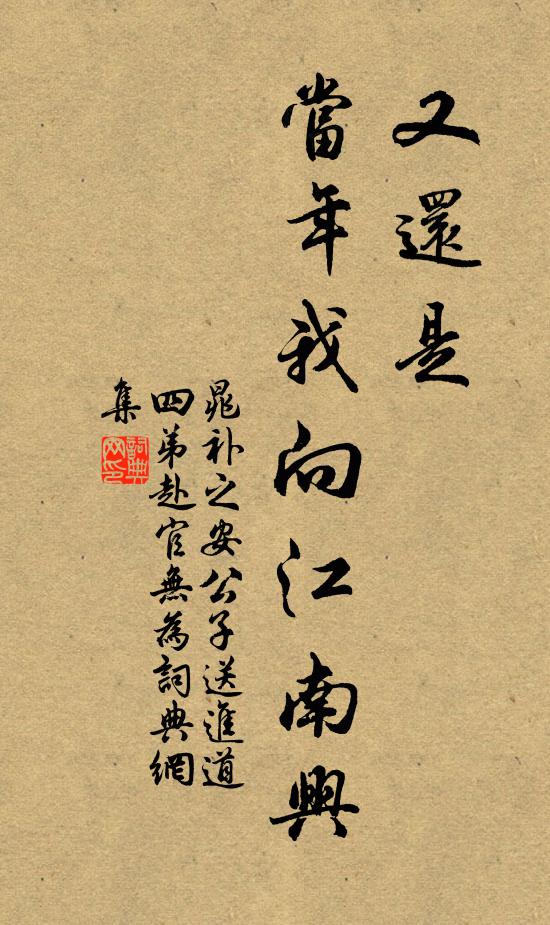 又還是
當年我向江南興
晁补之安公子送進道
四弟赴官無為詞典網
集
詞典
网印